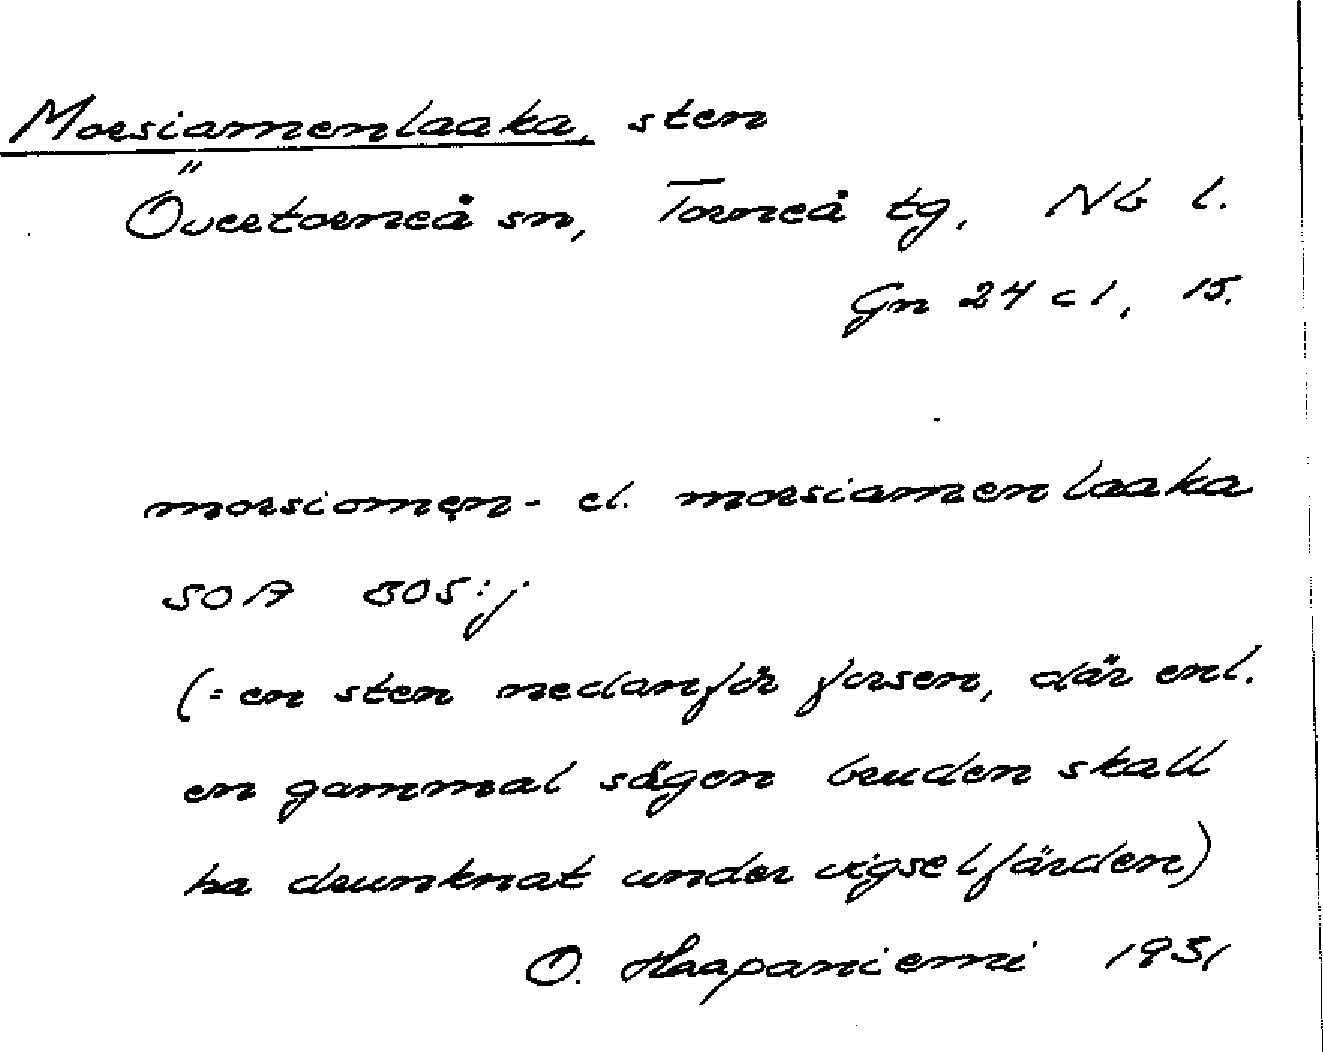 Morsiamenlaaka, sten
Övertorneå sn, Torneå tg, Nb l.
Gn 24 c 1, 15.
morsiomen- el. morsiamenlaaka
SOA 805:j
(= en sten nedanför forsen, där enl.
en gammal sägen bruden skall
ha drunknat under vigselfärden)
O. Haapaniemi 1931